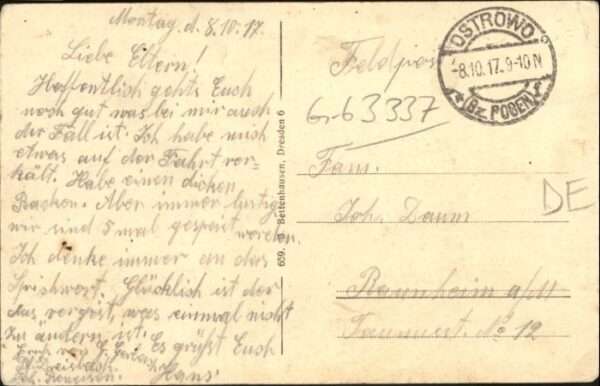 Montag, d. 8.10.17.
Liebe Eltern!
Hoffentlich gehts Euch
noch gut was bei mir auch
der Fall ist. Ich habe mich
etwas auf der Fahrt ver=
kält. Habe einen dicken
Backen. Aber immer lustig
wir sind 5 mal gespeist
worden.
Ich denke immer an das
Sprichwort. Glücklich ist der
das vergist, was einmal nicht
zu ändern ist. Es grüßt Euch
Hans
659. Bettenhausen, Dresden 6
Feldpost
OSTROWO
-8.10.17.9-10N
* (Bz. POSEN) f
Gr-63337
Fam.
Joh. Daum
DE
Raunheim a/M
No 12